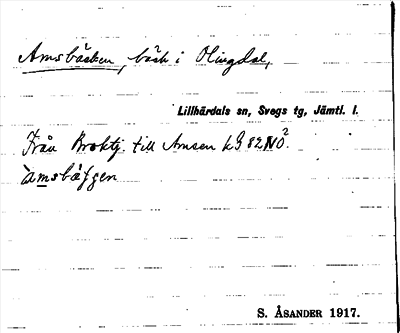 Amsbäcken, bäck i Olingdal,
Lillhärdals sn, Svegs tg, Jämtl. l.
Från Broktj. till Amsen k 82 NO
S. ÅSANDER 1917.